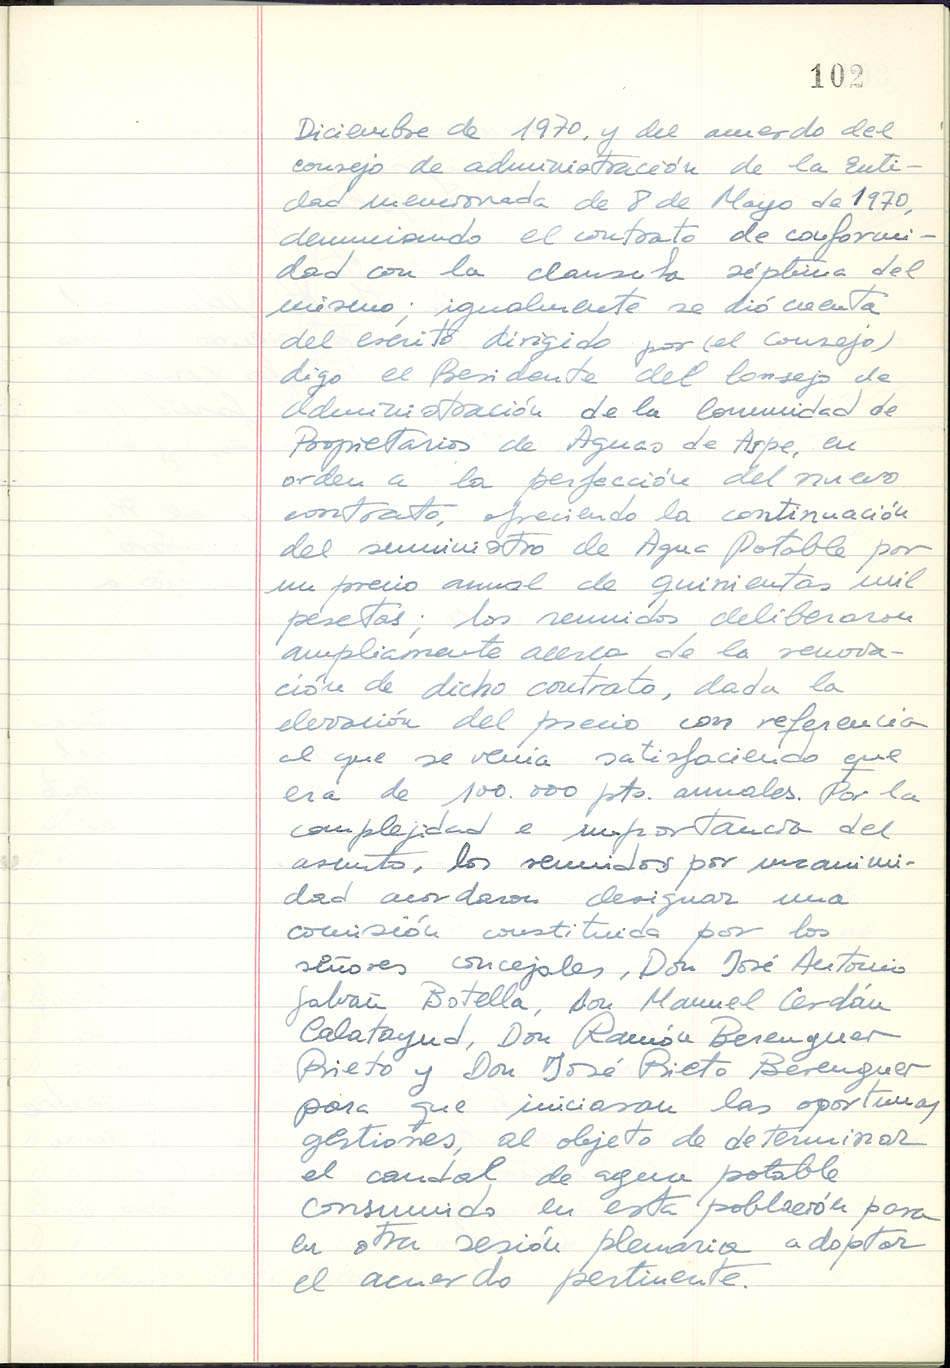 102
Diciembre de 1970, y del acuerdo del
consejo de administración de la Enti-
dad mencionada de 8 de Mayo de 1970,
denunciando el contrato de conformi-
dad con la clausula séptima del
mismo; igualmente se dió cuenta
del escrito dirigido por (el consejo)
digo el Presidente del Consejo de
Administración de la Comunidad de
Propietarios de Aguas de Aspe, en
orden a la perfección del nuevo
contrato, ofreciendo la continuación
del suministro de Agua Potable por
un precio anual de quinientas mil
pesetas; los reunidos deliberaron
ampliamente acerca de la renova-
ción de dicho contrato, dada la
elevación del precio con referencia
al que se venia satisfaciendo que
era de 100.000 pts. anuales. Por la
complejidad e importancia del
asunto, los reunidos por unanimi-
dad acordaron designar una
comisión constituida por los
señores concejales, Don José Antonio
Galvañ Botella, Don Manuel Cerdán
Calatayud, Don Ramón Berenguer
Prieto y Don José Prieto Berenguer
para que iniciaran las oportunas
gestiones, al objeto de determinar
el caudal de agua potable
consumido en esta población para
en otra sesión plenaria adoptar
el acuerdo pertinente.